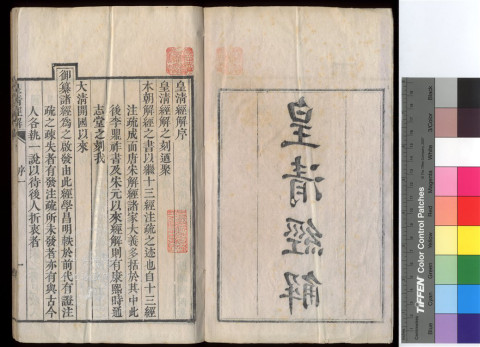 皇清經解
皇清經解序
皇清經解之刻迺聚
本朝解經之書以繼十三經注疏之迹也自十三經
注疏成而唐宋解經諸家大義多括於其中此
後李鼎祚書及宋元以來經解則有康熙時通
志堂之刻我
大清開國以來
御纂諸經為之啟發由此經學昌明軼於前代有證注
疏之疎失者有發注疏所未發者亦有與古今
人各執一說以待後人折衷者
皇清經解 序 一
TIFFEN Color Control Patches
Black
3/Color
White
Magenta
Red
Yellow
Green
Cyan
Blue